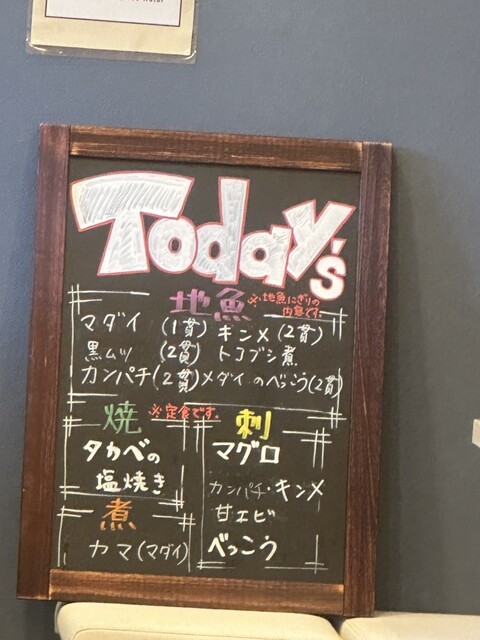 Today's
地魚 ※地魚にぎりの
内容です。
マダイ (1貫) キンメ (2貫)
黒ムツ (2貫) トコブシ煮
カンパチ (2貫) メダイのべっこう (2貫)
焼 ※定食です。 刺
タカベの
塩焼き
煮
カマ (マダイ)
マグロ
カンパチ・キンメ
甘エビ
べっこう